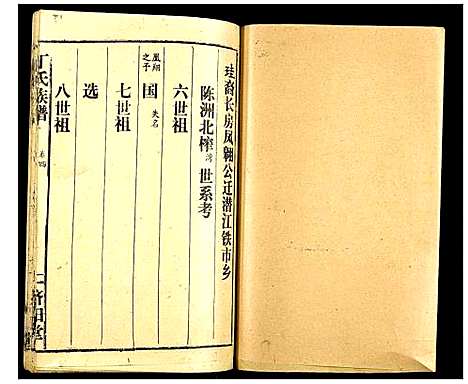 珪裔长房凤翱公迁潜江铁市乡
陈洲北榨湾世系考
六世祖
凤翔之子
国 失名
七世祖
选
八世祖
丁氏族谱
卷四
济阳堂